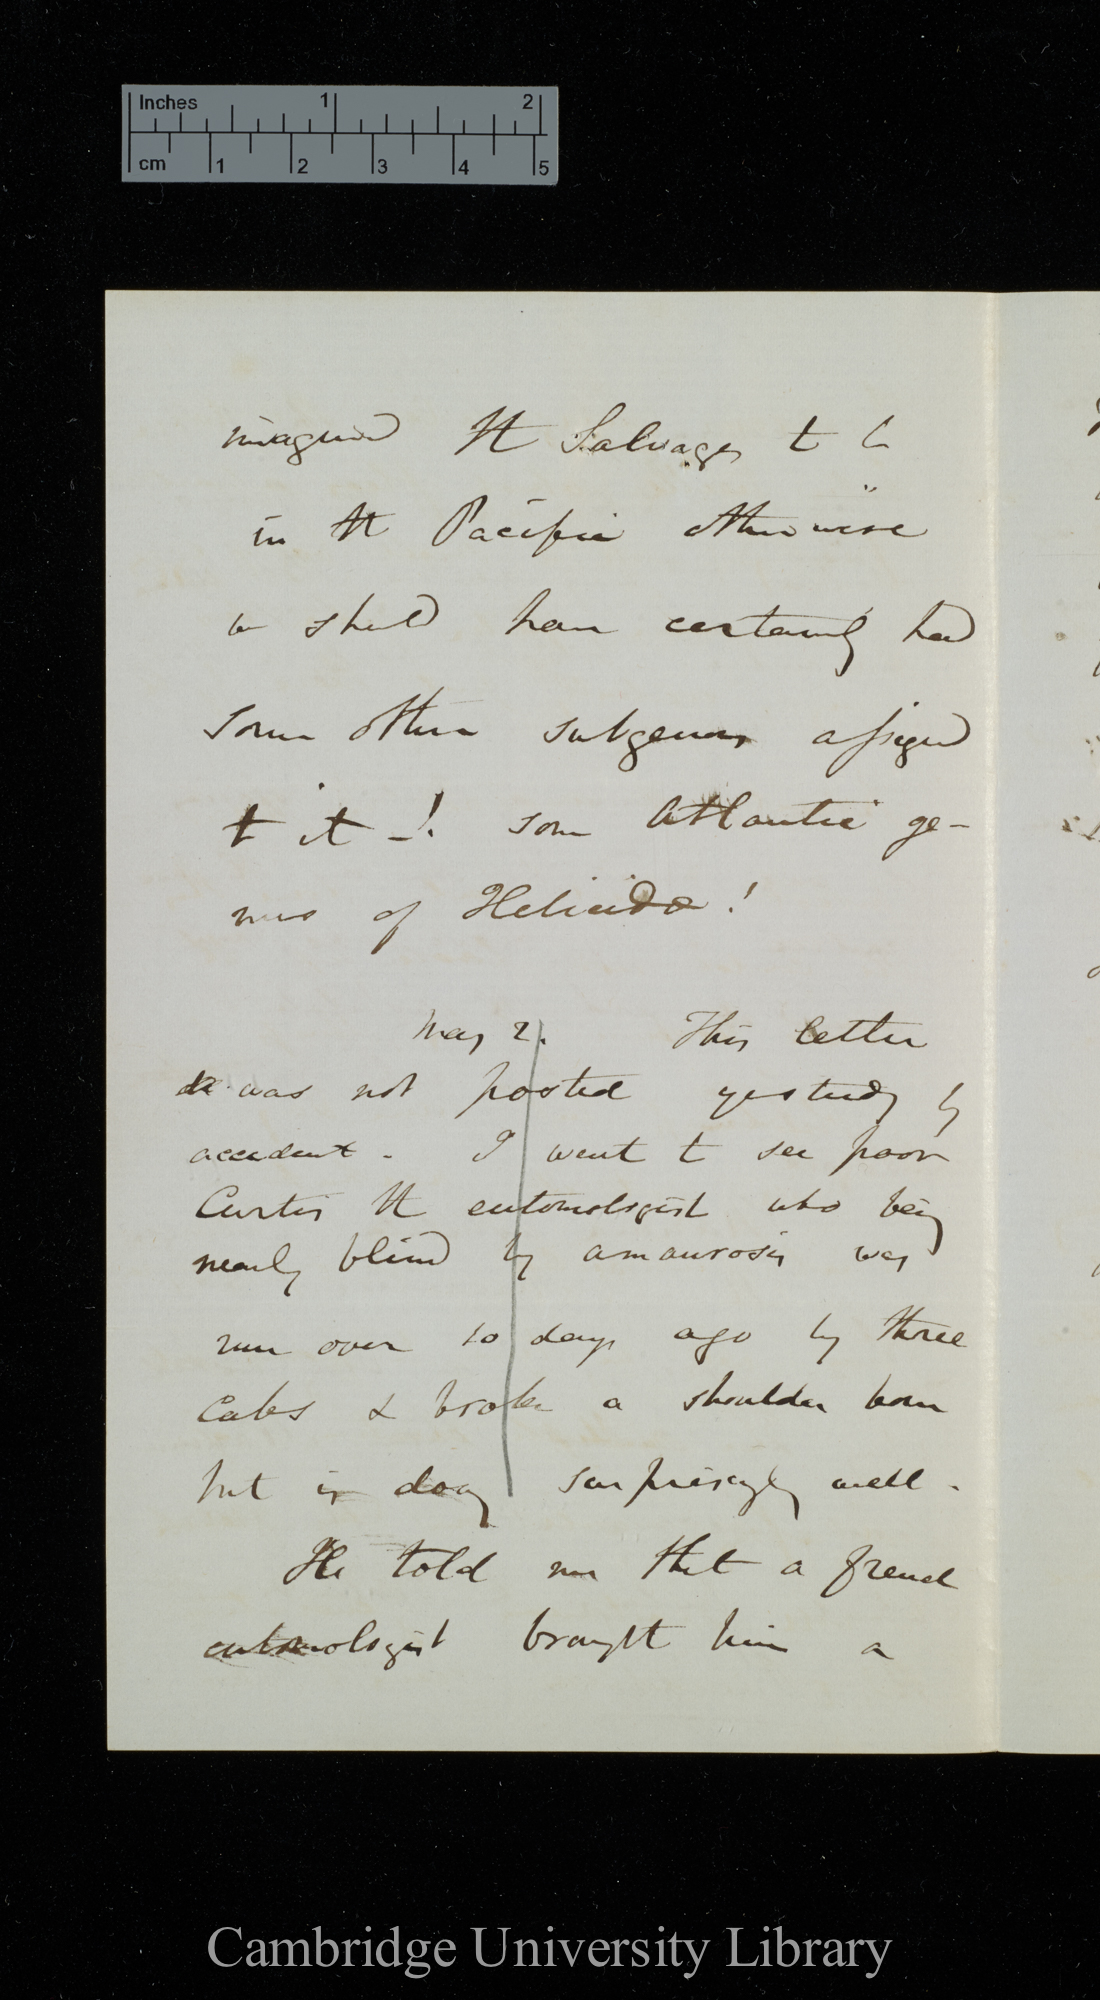 Inches 1 2
cm 1 2 3 4 5
imagined the Salvages to be
in the Pacific otherwise
we should have certainly had
some other subgenus assigned
to it —! some Atlantic ge-
nus of Helicidæ!
May 2. This letter
was not posted yesterday by
accident. I went to see poor
Curtis the entomologist who being
nearly blind by amaurosis was
run over 10 days ago by three
cabs & broke a shoulder bone
but is doing surprisingly well.
He told me that a French
entomologist brought him a
Cambridge University Library